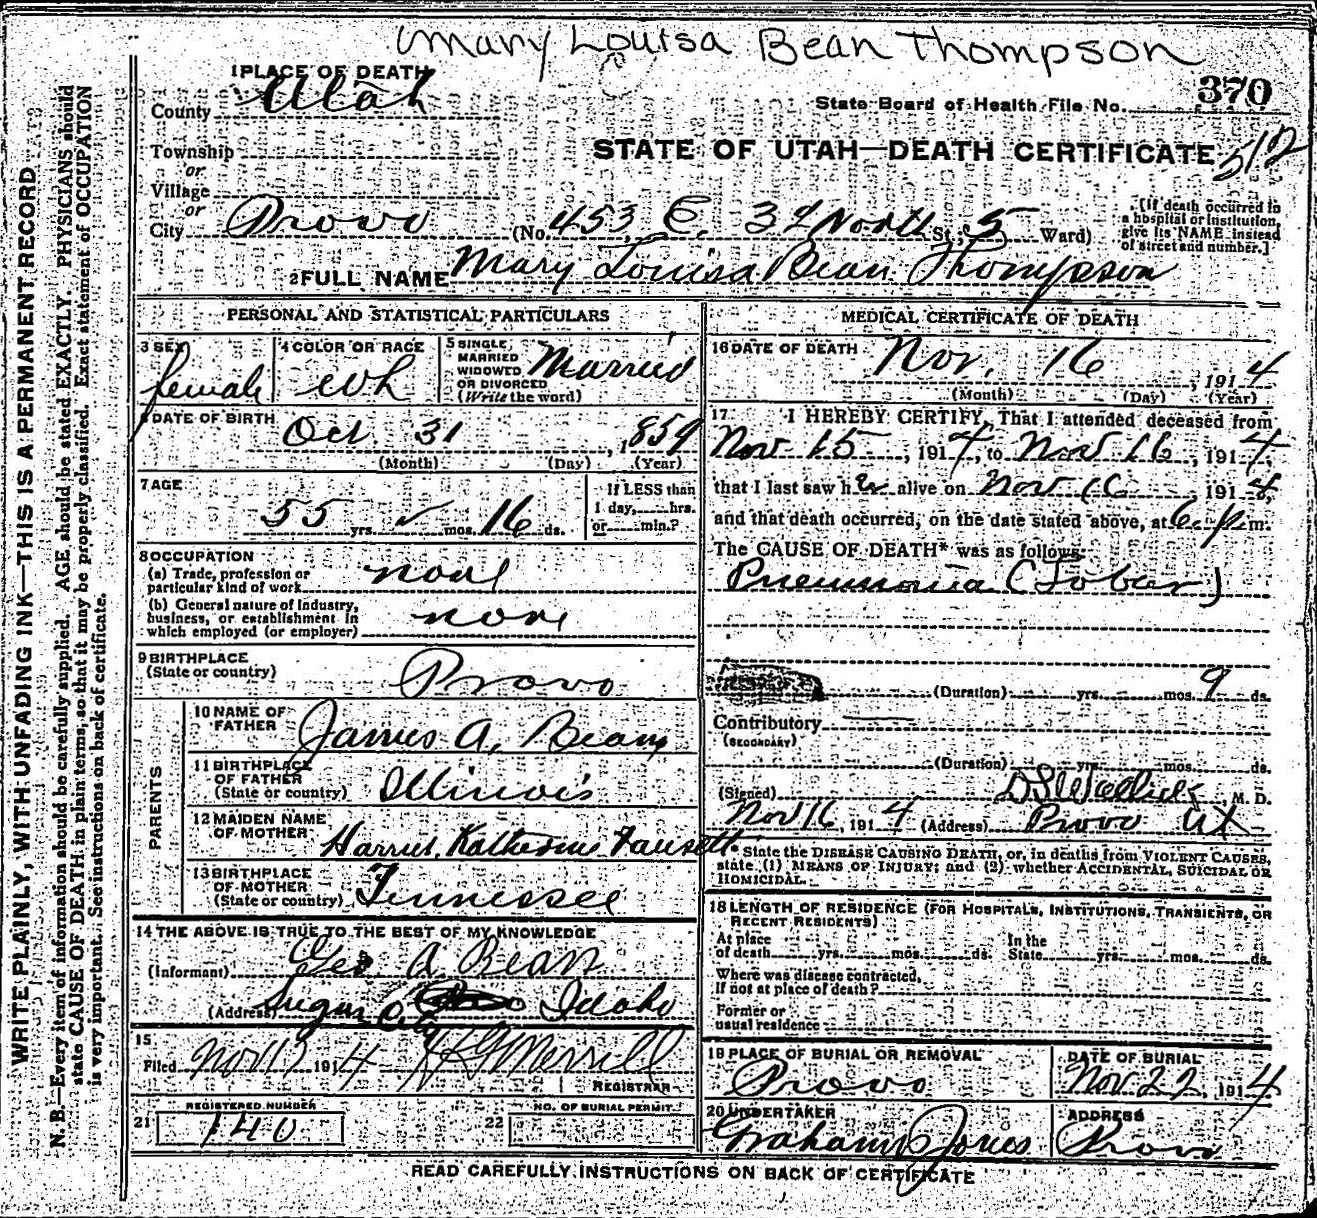 Mary Louisa Bean Thompson
1 PLACE OF DEATH
County Utah
State Board of Health File No. 370
Township
or
STATE OF UTAH—DEATH CERTIFICATE 512
Village
or
City Provo (No. 453 E. 3d North St., 5 Ward)
[If death occurred in
a hospital or institution,
give its NAME instead
of street and number.]
2 FULL NAME Mary Louisa Bean Thompson
PERSONAL AND STATISTICAL PARTICULARS
3 SEX female
4 COLOR OR RACE wh
5 SINGLE, MARRIED WIDOWED OR DIVORCED (Write the word) Married
6 DATE OF BIRTH Oct 31, 1859
(Month) (Day) (Year)
7 AGE 55 yrs. mos. 16 ds.
If LESS than
1 day, hrs.
or min.?
8 OCCUPATION
(a) Trade, profession or
particular kind of work none
(b) General nature of Industry,
business, or establishment in
which employed (or employer) none
9 BIRTHPLACE
(State or country) Provo
PARENTS
10 NAME OF
FATHER James A. Bean
11 BIRTHPLACE
OF FATHER
(State or country) Illinois
12 MAIDEN NAME
OF MOTHER Harriet Katherine Fausett
13 BIRTHPLACE
OF MOTHER
(State or country) Tennessee
14 THE ABOVE IS TRUE TO THE BEST OF MY KNOWLEDGE
(Informant) Geo A. Bean
(Address) Sugar City Idaho
15
Filed Nov 1914 Merrill
REGISTRAR
REGISTERED NUMBER
21 140
NO. OF BURIAL PERMIT
22
MEDICAL CERTIFICATE OF DEATH
16 DATE OF DEATH Nov. 16, 1914
(Month) (Day) (Year)
17 I HEREBY CERTIFY, That I attended deceased from
Nov 15, 1914, to Nov 16, 1914,
that I last saw her alive on Nov 16, 1914,
and that death occurred, on the date stated above, at 6 p m.
The CAUSE OF DEATH* was as follows:
Pneumonia (Lobar)
(Duration) yrs. mos. 9 ds.
Contributory
(SECONDARY)
(Duration) yrs. mos. ds.
(Signed) M. D.
Nov 16, 1914 (Address) Provo Ut
* State the DISEASE CAUSING DEATH, or, in deaths from VIOLENT CAUSES,
state (1) MEANS OF INJURY; and (2) whether ACCIDENTAL, SUICIDAL OR
HOMICIDAL.
18 LENGTH OF RESIDENCE (FOR HOSPITALS, INSTITUTIONS, TRANSIENTS, OR
RECENT RESIDENTS)
At place of death yrs. mos. ds. In the State yrs. mos. ds.
Where was disease contracted,
If not at place of death?
Former or
usual residence
19 PLACE OF BURIAL OR REMOVAL
Provo
DATE OF BURIAL
Nov 22, 1914
20 UNDERTAKER
Graham Jones
ADDRESS
Provo
READ CAREFULLY INSTRUCTIONS ON BACK OF CERTIFICATE
WRITE PLAINLY, WITH UNFADING INK—THIS IS A PERMANENT RECORD
N. B.—Every item of information should be carefully supplied. AGE should be stated EXACTLY. PHYSICIANS should
state CAUSE OF DEATH in plain terms, so that it may be properly classified. Exact statement of OCCUPATION
is very important. See instructions on back of certificate.